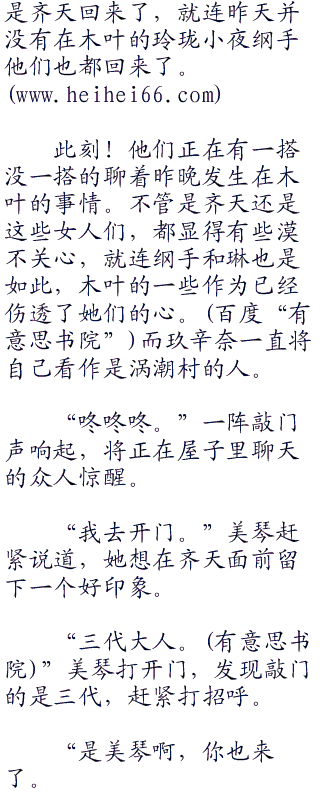 是齐天回来了，就连昨天并
没有在木叶的玲珑小夜纲手
他们也都回来了。
(www.heihei66.com)
此刻！他们正在有一搭
没一搭的聊着昨晚发生在木
叶的事情。不管是齐天还是
这些女人们，都显得有些漠
不关心，就连纲手和琳也是
如此，木叶的一些作为已经
伤透了她们的心。(百度“有
意思书院”)而玖辛奈一直将
自己看作是涡潮村的人。
“咚咚咚。”一阵敲门
声响起，将正在屋子里聊天
的众人惊醒。
“我去开门。”美琴赶
紧说道，她想在齐天面前留
下一个好印象。
“三代大人。(有意思书
院)”美琴打开门，发现敲门
的是三代，赶紧打招呼。
“是美琴啊，你也来
了。